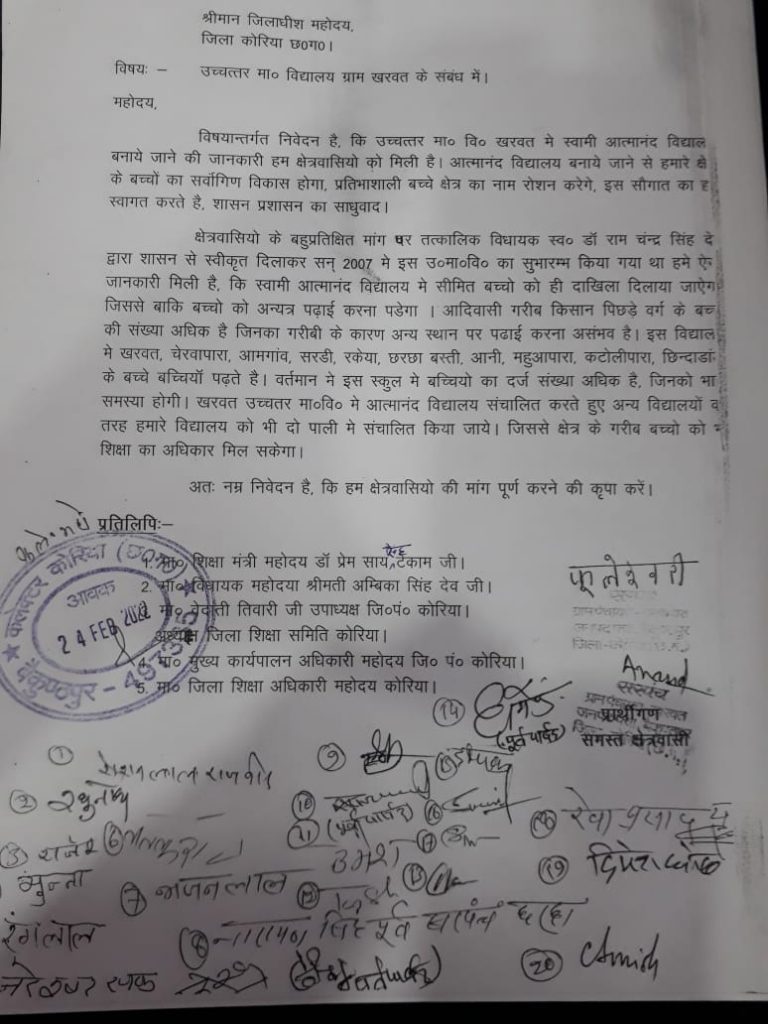 श्रीमान जिलाधीश महोदय,
जिला कोरिया छ0ग0।
विषयः – उच्चत्तर मा० विद्यालय ग्राम खरवत के संबंध में।
महोदय,
विषयान्तर्गत निवेदन है, कि उच्चत्तर मा० वि० खरवत मे स्वामी आत्मानंद विद्याल
बनाये जाने की जानकारी हम क्षेत्रवासियो को मिली है। आत्मानंद विद्यालय बनाये जाने से हमारे क्षे
के बच्चों का सर्वोगिण विकास होगा, प्रतिभाशाली बच्चे क्षेत्र का नाम रोशन करेगे, इस सौगात का ह
स्वागत करते है, शासन प्रशासन का साधुवाद।
क्षेत्रवासियो के बहुप्रतिक्षित मांग पर तत्कालिक विधायक स्व० डॉ राम चंन्द्र सिंह दे
द्वारा शासन से स्वीकृत दिलाकर सन् 2007 मे इस उ०मा०वि० का सुभारम्भ किया गया था हमे ऐ
जानकारी मिली है, कि स्वामी आत्मानंद विद्यालय मे सीमित बच्चो को ही दाखिला दिलाया जाऐग
जिससे बाकि बच्चो को अन्यत्र पढ़ाई करना पडेगा । आदिवासी गरीब किसान पिछड़े वर्ग के बच्
की संख्या अधिक है जिनका गरीबी के कारण अन्य स्थान पर पढाई करना असंभव है। इस विद्याल
मे खरवत, चेरवापारा, आमगांव, सरडी, रकेया, छरछा बस्ती, आनी, महुआपारा, कटोलीपारा, छिन्दाडां
के बच्चे बच्चियॉ पढ़ते है। वर्तमान मे इस स्कुल मे बच्चियो का दर्ज संख्या अधिक है, जिनको भा
समस्या होगी। खरवत उच्चतर मा०वि० मे आत्मानंद विद्यालय संचालित करते हुए अन्य विद्यालयों व
तरह हमारे विद्यालय को भी दो पाली मे संचालित किया जाये। जिससे क्षेत्र के गरीब बच्चो को
शिक्षा का अधिकार मिल सकेगा।
अतः नम्र निवेदन है, कि हम क्षेत्रवासियो की मांग पूर्ण करने की कृपा करें।
प्रतिलिपिः–
1. मा० शिक्षा मंत्री महोदय डॉ प्रेम साय टेकाम जी।
2. मा० विधायक महोदया श्रीमती अम्बिका सिंह देव जी।
मा० वेदांती तिवारी जी उपाध्यक्ष जि०पं० कोरिया।
अध्यक्ष जिला शिक्षा समिति कोरिया।
4. मा० मुख्य कार्यपालन अधिकारी महोदय जि० पं० कोरिया।
5. मा० जिला शिक्षा अधिकारी महोदय कोरिया।
कलेक्टर कोरिया
आवक
24 FEB 2022
बैकुण्ठपुर
फूलेश्वरी
Anand
सरपंच
प्रार्थीगण
समस्त क्षेत्रवासी
14
(पूर्व पार्षद)
1
2
3 राजेश
मुन्ना
रंगलाल
6
7 भजन लाल
8 नारायण सिंह पूर्व सरपंच
9
10
11 (पूर्व पार्षद)
उमेश
16
17
19
20